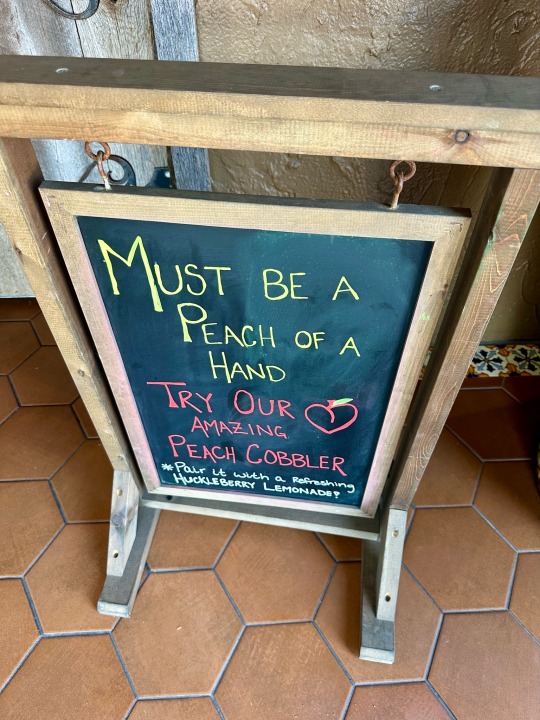 MUST BE A
PEACH OF A
HAND
TRY OUR
AMAZING
PEACH COBBLER
*Pair it with a Refreshing
HUCKLEBERRY LEMONADE?